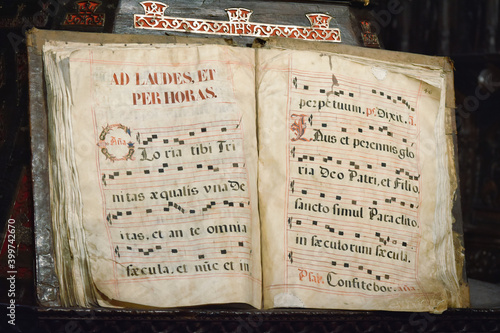 AD LAUDES, ET
PER HORAS.
Aña.
Gloria tibi Tri
nitas æqualis vna De
itas, et an te omnia
sæcula, et nũc et in
perpetuum. ps. Dixit. a.
Laus et perennis glo
ria Deo Patri, et Filio,
sancto simul Paraclito,
in sæculorum sæcula.
Psal. Confitebor. aña
Adobe Stock | #399742670